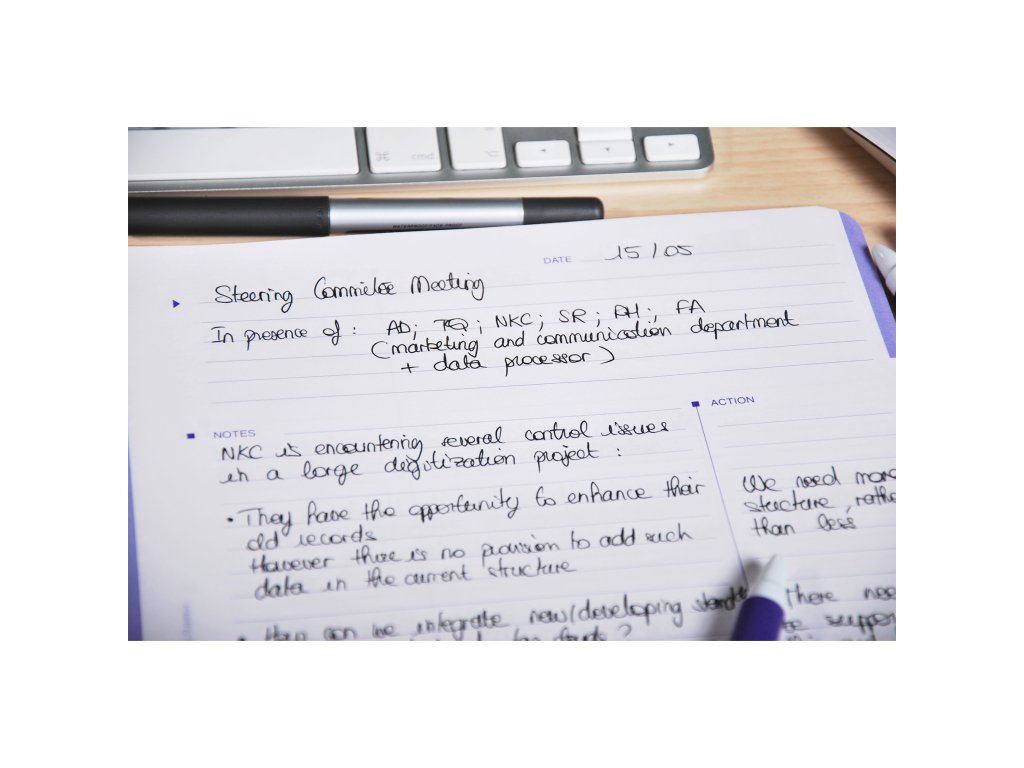 ⌘ cmd
DATE 15/05
Steering Commitee Meeting
In presence of : AD; TQ; NKC; SR; PH; FA
(marketing and communication department
+ data processor)
NOTES
NKC is encountering several control issues
in a large digitization project :
• They have the opportunity to enhance their
old records
However there is no provision to add such
data in the current structure
• How can we integrate new/developing
ACTION
We need more
structure, rathe
than less
there nee
suppor